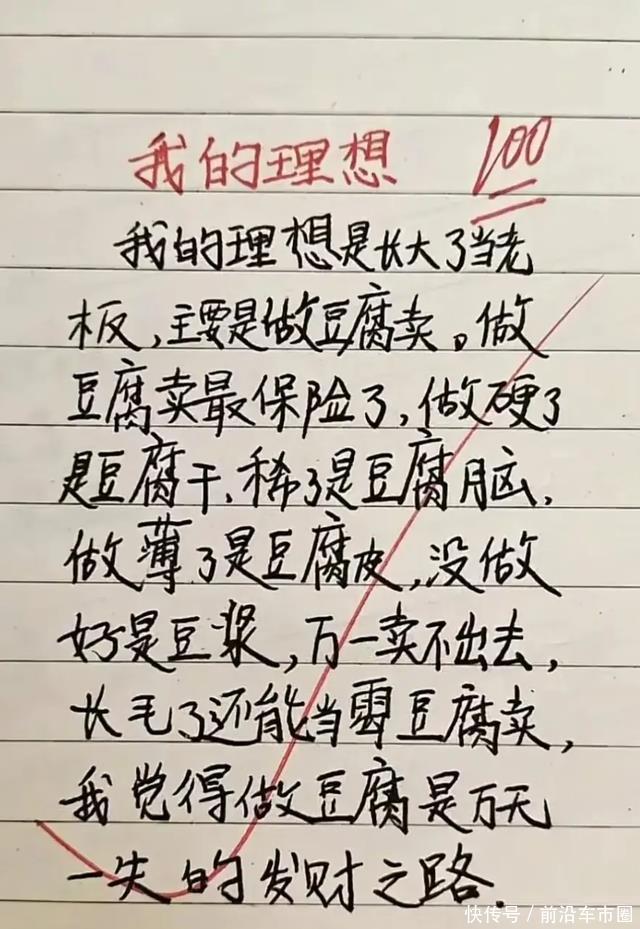 我的理想 100
我的理想是长大了当老
板,主要是做豆腐卖。做
豆腐卖最保险了,做硬了
是豆腐干,稀了是豆腐脑,
做薄了是豆腐皮,没做
好是豆浆,万一卖不出去,
长毛了还能当霉豆腐卖,
我觉得做豆腐是万无
一失的发财之路.
快传号/前沿车市圈